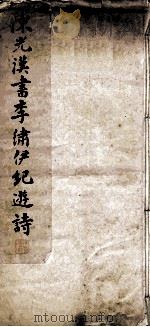 陳光漢書李繡伊紀遊詩
mtoou.info